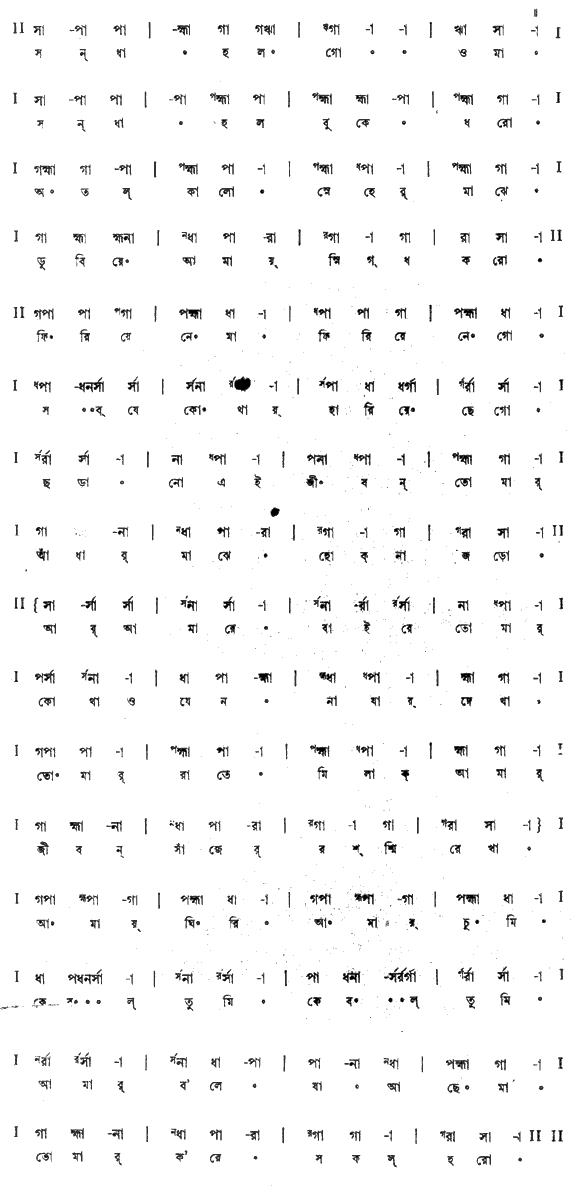 II সা -পা পা | -হ্মা গা গঋা | ঋগা -া -া | ঋা সা -া I
স ন্ ধা • হ ল• গো • • ও মা •
I সা -পা পা | -পা পহ্মা পা | পহ্মা হ্মা -পা | পহ্মা গা -া I
স ন্ ধা • হ ল বু কে • ধ রো •
I গহ্মা গা -পা | পহ্মা পা -া | পহ্মা ধপা -া | পহ্মা গা -া I
অ • ত ল্ কা লো • স্নে হে র্ মা ঝে •
I গা হ্মা হ্মনা | নধা পা -রা | রগা -া গা | রা সা -া II
ডু বি য়ে• আ মা য় স্নি গ্ ধ ক রো •
II গপা পা পগা | পহ্মা ধা -া | ধপা পা গা | পহ্মা ধা -া I
ফি• রি য়ে নে• মা • ফি রি য়ে নে• গো •
I ধপা -ধনর্সা র্সা | র্সনা -া | র্সপা ধা ধর্গা | র্গর্রা র্সা -া I
স ••ব্ যে কো• থা য় হা রি য়ে• ছে গো •
I র্সর্রা র্সা -া | না ধপা -া | পনা ধপা -া | পহ্মা গা -া I
ছ ড়া • নো এ ই জী• ব ন্ তো মা র্
I গা -না | নধা পা -রা | রগা -া গা | গরা সা -া II
আঁ ধা র্ মা ঝে • হো ক্ না জ ড়ো •
II { সা -র্সা র্সা | র্সনা র্সা -া | র্সনা -র্রা র্রর্সা | না ধপা -া I
আ র্ আ মা রে • বা ই রে তো মা র্
I পর্সা র্সনা -া | ধা পা -হ্মা | হ্মধা ধপা -া | হ্মা গা -া I
কো থা ও যে ন • না যা য় দে খা •
I গপা পা -া | পহ্মা পা -া | পহ্মা ধপা -া | হ্মা গা -া I
তো• মা র্ রা তে • মি লা ক্ আ মা র্
I গা হ্মা -না | নধা পা -রা | রগা -া গা | গরা সা -া } I
জী ব ন্ সাঁ জে র্ র শ্ মি রে খা •
I গপা হ্মপা -গা | পহ্মা ধা -া | গপা হ্মপা -গা | পহ্মা ধা -া I
আ• মা য় ঘি• রি • আ• মা য় চু • মি •
I ধা পধনর্সা -া | র্সনা র্রর্সা -া | পা ধনা -র্সর্রর্গা | র্গর্রা র্সা -া I
কে ব••• ল্ তু মি • কে ব• ••ল্ তু মি •
I নর্রা র্রর্সা -া | র্সনা ধা -পা | পা -না নধা | পহ্মা গা -া I
আ মা র্ ব' লে • যা • আ ছে• মা •
I গা হ্মা -না | নধা পা -রা | রগা গা -া | গরা সা -া II II
তো মা র্ ক' রে • স ক ল্ হ রো •